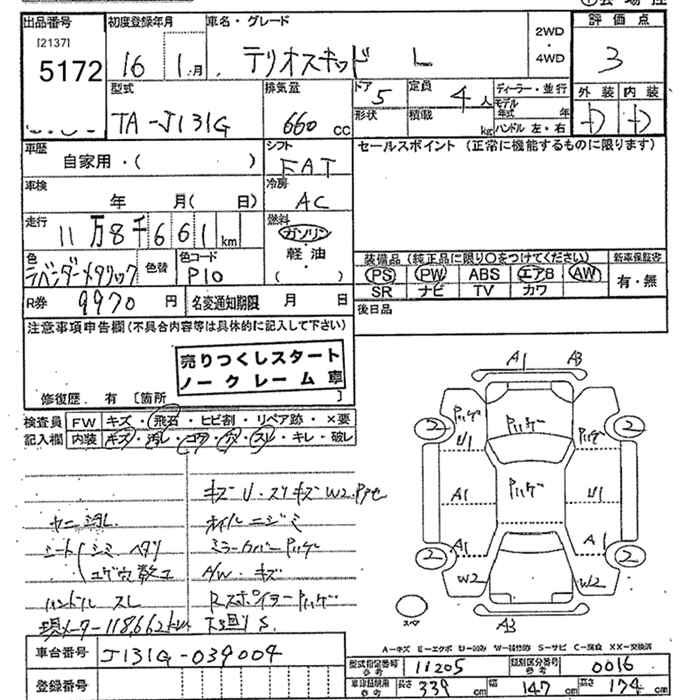 出品番号 初度登録年月 車名・グレード 評価点
[2137]
5172 16 1月 テリオスキッド L 2WD・4WD 3
型式 排気量 ドア 定員 ディーラー・並行 外装 内装
TA-J131G 660cc 5 4人 モデル年式 年
形状 積載 kg ハンドル 左・右 D D
車歴 自家用・( ) シフト FAT セールスポイント (正常に機能するものに限ります)
車検 年 月( 日) 冷房 AC
走行 11万8千661km 燃料 ガソリン・軽油 ( )
装備品 (純正品に限り○をつけてください) 新車保証書
色 ラベンダーメタリック 色替 色コード P10 PS PW ABS エアB AW 有・無
SR ナビ TV カワ
R券 9970円 名変通知期限 月 日 後日品
注意事項申告欄(不具合内容等は具体的に記入して下さい)
売りつくしスタート
ノークレーム車
修復歴. 有 [箇所 ]
検査員 FW キズ・飛石・ヒビ割・リペア跡・×要
記入欄 内装 キズ・汚レ・コゲ・穴・スレ・キレ・破レ
キズU・スリキズW2.
ヤニ汚レ オイルニジミ
シート シミ ヘタリ ミラーカバーPハゲ
コゲ穴数コ A/W キズ
ハンドル スレ RスポイラーPハゲ
現メーター118,662km 下廻りS.
A1 A3
Pハゲ Pハゲ Pハゲ
2 U1 2
A1 Pハゲ U1
A1 A1
2 2
W2 W2
スペア A3
A-キズ E-エクボ W-補修跡 S-サビ C-腐食 XX-交換済
車台番号 J131G-039004
型式指定番号 参考 11205 類別区分番号 参考 0016
登録番号 参考 長さ 339cm 幅 147cm 高さ 174cm